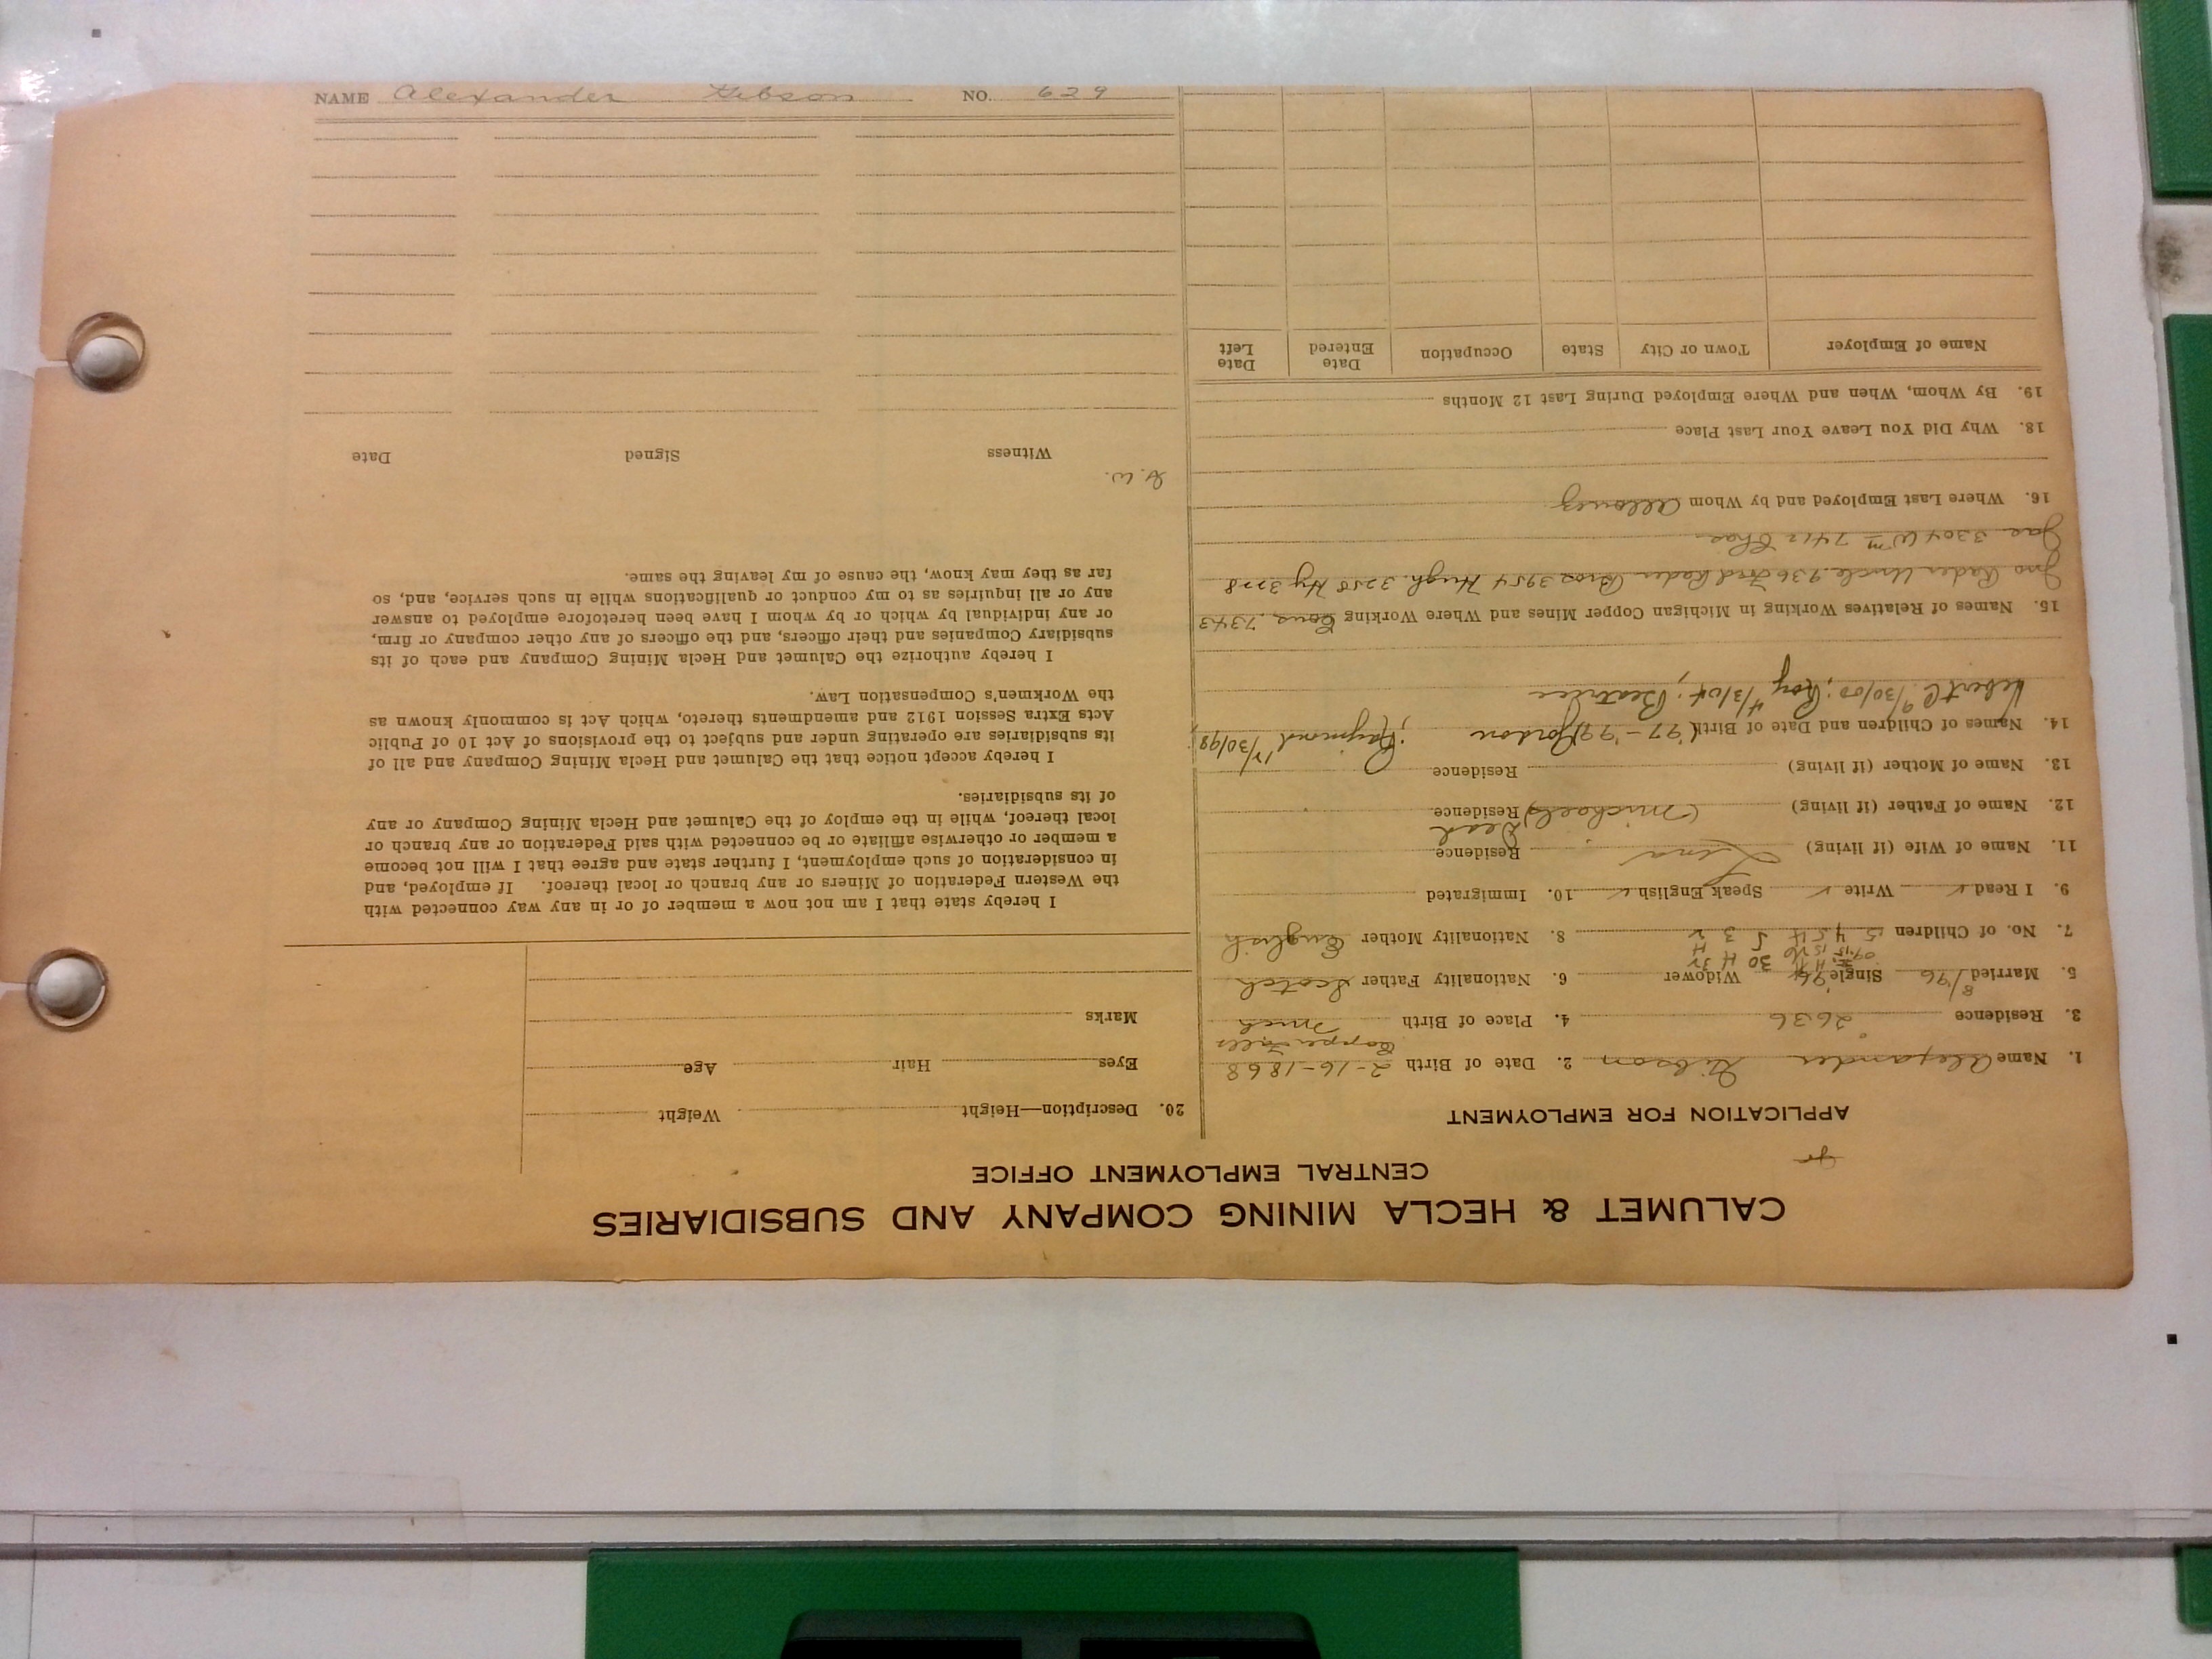 CALUMET & HECLA MINING COMPANY AND SUBSIDIARIES
CENTRAL EMPLOYMENT OFFICE
APPLICATION FOR EMPLOYMENT
1. Name Alexander Gibson 2. Date of Birth 2-16-1868
3. Residence 2636 4. Place of Birth Copper Falls Mich
5. Married 8/96 Single Widower 6. Nationality Father Scotch
7. No. of Children 5 4 5 3 2 8. Nationality Mother English
9. I Read ✓ Write ✓ Speak English ✓ 10. Immigrated
11. Name of Wife (if living) Lena Residence
12. Name of Father (if living) (Michael) Dead Residence
13. Name of Mother (if living) Residence
14. Names of Children and Date of Birth ('97-'99) Gordon ; Raymond 12/30/98;
9/30/00; Roy 4/3/04; Beatrice
15. Names of Relatives Working in Michigan Copper Mines and Where Working Cous. 7343
Jno Rader Uncle 936 Fred Rader Bros 3954 Hugh 3258 Hy 3278
Jac 3304 Wm 7412 Chas
16. Where Last Employed and by Whom Allouez
18. Why Did You Leave Your Last Place
19. By Whom, When and Where Employed During Last 12 Months
Name of Employer Town or City State Occupation Date Entered Date Left
20. Description—Height Weight
Eyes Hair Age
Marks
I hereby state that I am not now a member of or in any way connected with
the Western Federation of Miners or any branch or local thereof. If employed, and
in consideration of such employment, I further state and agree that I will not become
a member or otherwise affiliate or be connected with said Federation or any branch or
local thereof, while in the employ of the Calumet and Hecla Mining Company or any
of its subsidiaries.
I hereby accept notice that the Calumet and Hecla Mining Company and all of
its subsidiaries are operating under and subject to the provisions of Act 10 of Public
Acts Extra Session 1912 and amendments thereto, which Act is commonly known as
the Workmen's Compensation Law.
I hereby authorize the Calumet and Hecla Mining Company and each of its
subsidiary Companies and their officers, and the officers of any other company or firm,
or any individual by which or by whom I have been heretofore employed to answer
any or all inquiries as to my conduct or qualifications while in such service, and, so
far as they may know, the cause of my leaving the same.
Witness Signed Date
NAME Alexander Gibson NO. 629